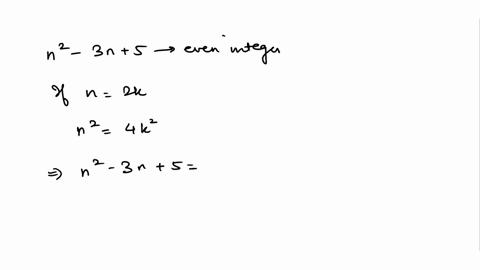 n² - 3n + 5 → even intege
If n = 2k
n² = 4k²
⇒ n² - 3n + 5 =